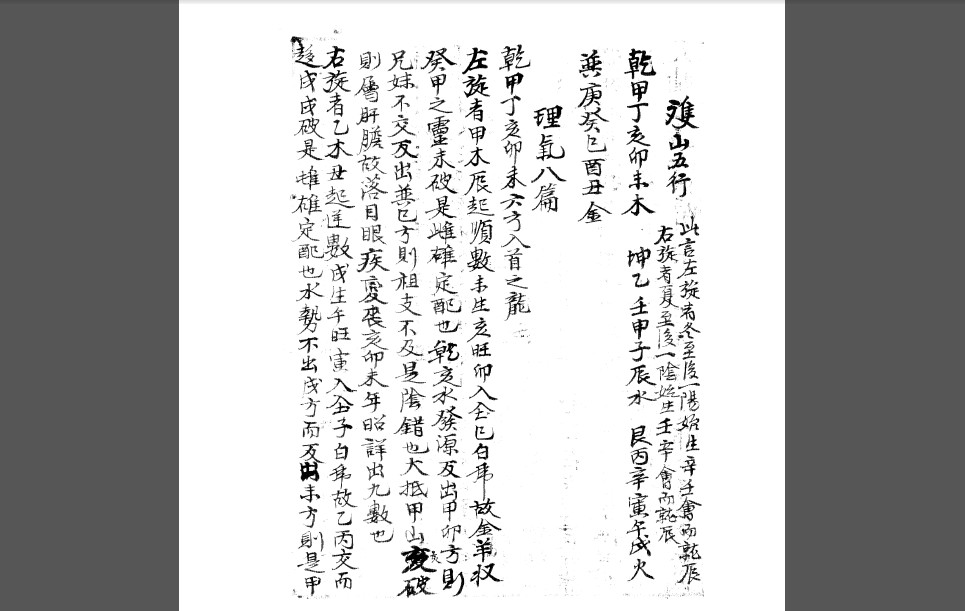 雙山五行
此言左旋者冬至後一陽始生辛壬會而聚辰
右旋者夏至後一陰始生壬辛會而聚辰
乾甲丁亥卯未木 坤乙壬申子辰水 艮丙辛寅午戌火
巽庚癸巳酉丑金
理氣八篇
乾甲丁亥卯未六方入首之龍
左旋者甲木辰起順數未生亥旺卯入 巳白 故金羊收
癸甲之靈未破是雌雄定配也乾亥水發源及出甲卯方則
兄妹不交及出巽巳方則祖支不及是陰錯也大抵甲山 破
則屬肝膽故落目眼疾 喪亥卯未年昭詳出九數也
右旋者乙木丑起逆數戌生午旺寅入 子白 故乙丙交而
趨戌戌破是雌雄定配也水勢不出戌方而及出未方則是甲